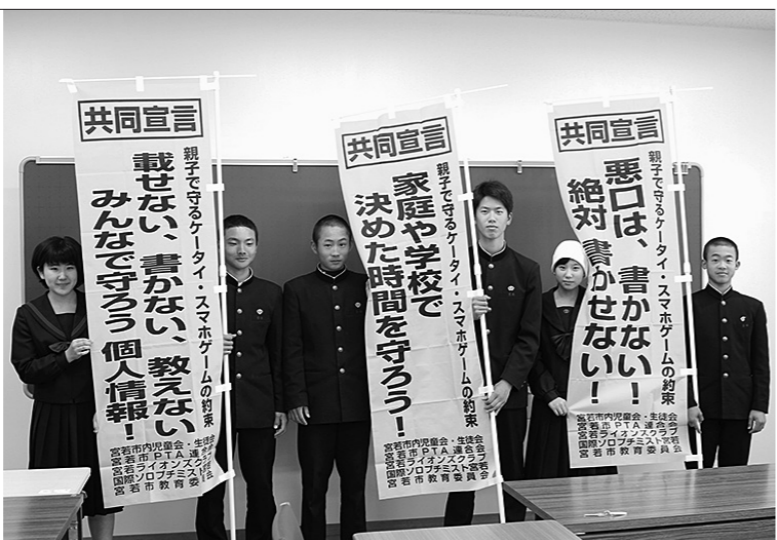 共同宣言
親子で守るケータイ・スマホゲームの約束
載せない、書かない、教えない
みんなで守ろう 個人情報!
宮若市内児童会・生徒会
宮若市PTA連合会
宮若ライオンズクラブ
国際ソロプチミスト宮若
宮若市教育委員会
共同宣言
親子で守るケータイ・スマホゲームの約束
家庭や学校で
決めた時間を守ろう!
宮若市内児童会・生徒会
宮若市PTA連合会
宮若ライオンズクラブ
国際ソロプチミスト宮若
宮若市教育委員会
共同宣言
親子で守るケータイ・スマホゲームの約束
悪口は、書かない!
絶対 書かせない!
宮若市内児童会・生徒会
宮若市PTA連合会
宮若ライオンズクラブ
国際ソロプチミスト宮若
宮若市教育委員会